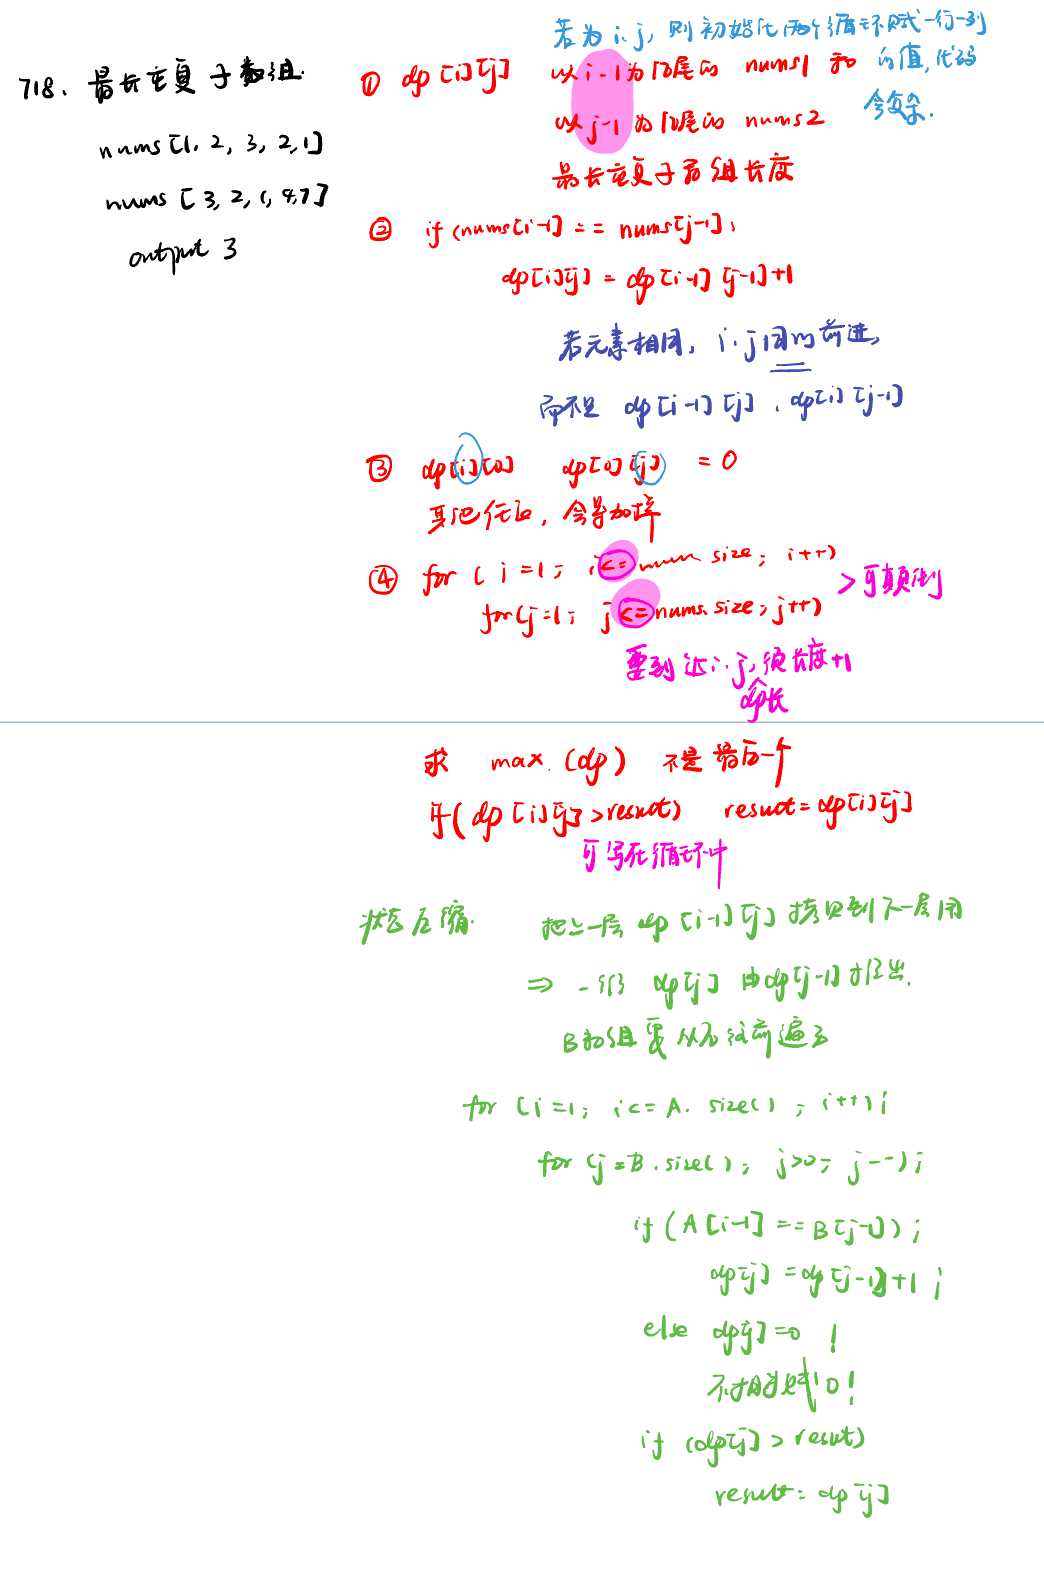 718. 最长重复子数组.
nums [1, 2, 3, 2, 1]
nums [3, 2, 1, 4, 7]
output 3
若为 i, j, 则初始化两个循环赋一行一列的值, 代码会复杂.
① dp[i][j] 以 i-1 为结尾的 nums1 和
以 j-1 为结尾的 nums2
最长重复子数组长度
② if (nums[i-1] == nums[j-1];
dp[i][j] = dp[i-1][j-1]+1
若元素相同, i, j 同时前进,
而不是 dp[i-1][j], dp[i][j-1]
③ dp[i][0] dp[0][j] = 0
其他任意, 会导加
④ for (i=1; i<=num size; i++)
for(j=1; j<=nums.size; j++)
>可颠倒
要到达 i, j, 须长度+1
dp长
求 max (dp) 不是最后一个
if( dp[i][j] > result) result = dp[i][j]
可写在循环中
状态压缩. 把上一层 dp[i-1][j] 拷贝到下一层用
⇒ 一行 dp[j] 由 dp[j-1] 推出.
B数组要从后往前遍历
for (i=1; i<=A.size(); i++);
for (j=B.size(); j>0; j--);
if (A[i-1] == B[j-1]);
dp[j] = dp[j-1]+1;
else dp[j]=0 !
不相等赋 0!
if (dp[j] > result)
result = dp[j]